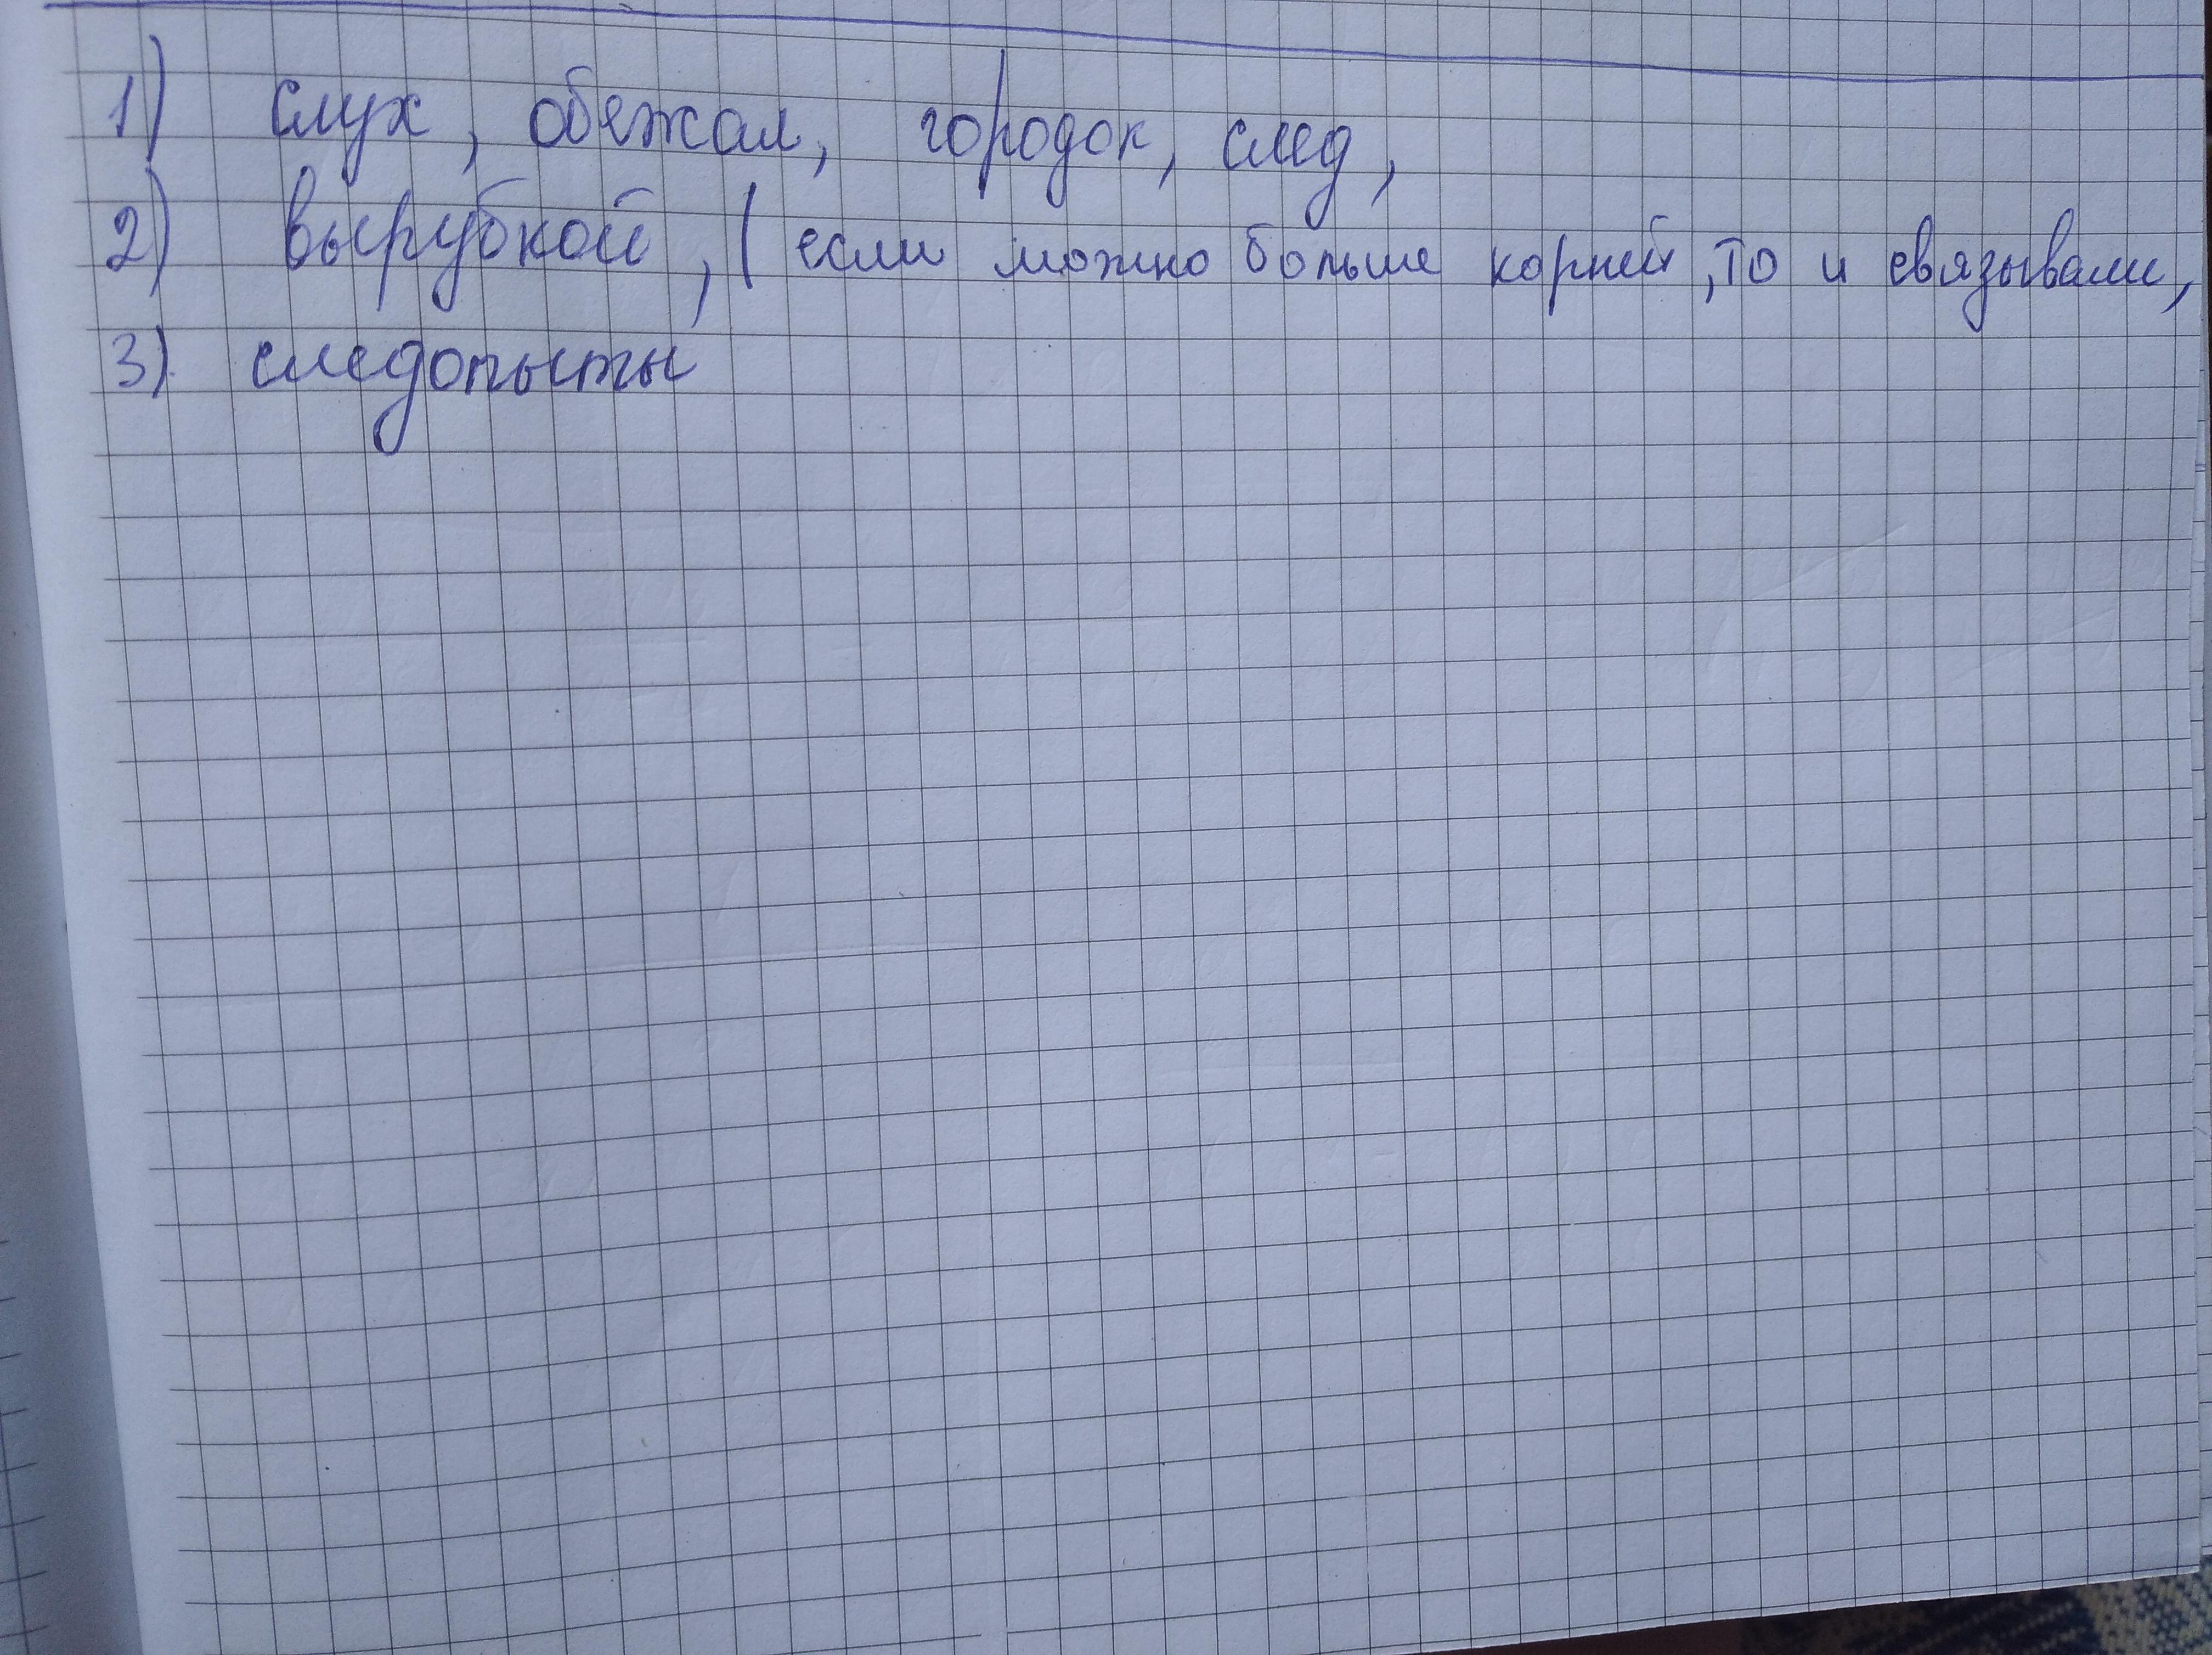 1) слух, обежал, городок, след,
2) вырубкой, (если можно больше корней, то и связывали,
3) следопыты